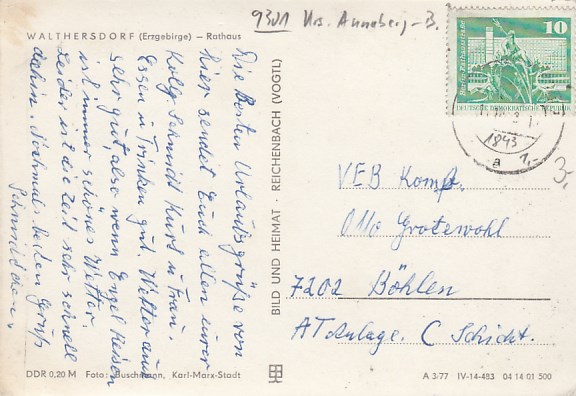 9301 Krs. Annaberg-B.
WALTHERSDORF (Erzgebirge) – Rathaus
Die Besten Urlaubsgrüße von
hier sendet Euch allen eurer
Kollg. Schmidt Kurt u. Frau.
Essen u. Trinken gut. Wetter auch
sehr gut, also wenn Engel Reisen
ist immer schönes Wetter.
Leider ist die Zeit sehr schnell
dahin. Nochmals besten Gruß
BILD UND HEIMAT · REICHENBACH (VOGTL)
10
DEUTSCHE DEMOKRATISCHE REPUBLIK
1843
a
1,-
3,-
VEB Komb.
Otto Grotewohl
7202 Böhlen
AT Anlage. C Schicht.
DDR 0,20 M Foto: Buschmann, Karl-Marx-Stadt
A 3/77 IV-14-483 04 14 01 500